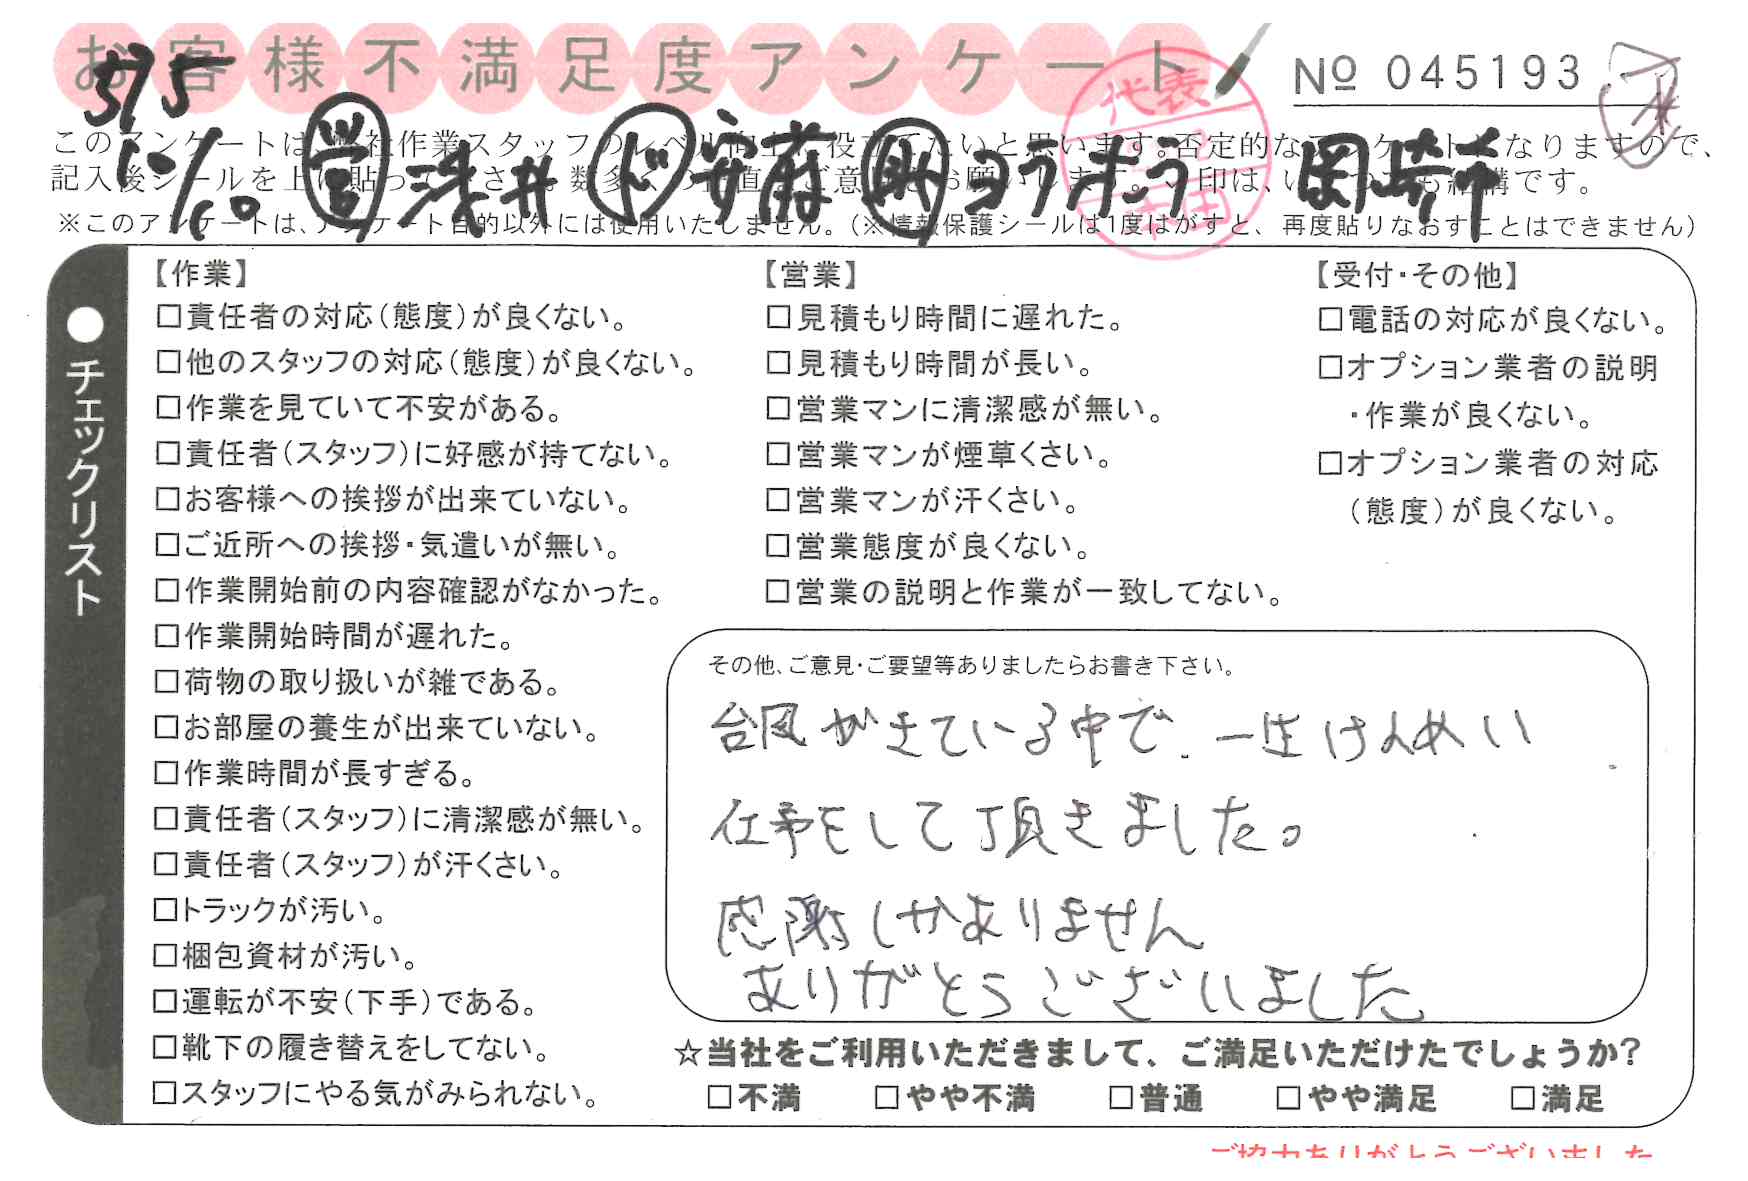 お客様不満足度アンケート
№ 045193
このアンケートは、弊社作業スタッフのレベル向上に役立てたいと思います。否定的なアンケートになりますので、
記入後シールを上に貼ってください。数多くの正直なご意見をお願いします。✓印は、いくつでも結構です。
※このアンケートは、アンケート目的以外には使用いたしません。(※情報保護シールは1度はがすと、再度貼りなおすことはできません)
575
営 浅井 ド 安藤 剛 ヨウ
岡崎市
代表
●チェックリスト
【作業】
□責任者の対応(態度)が良くない。
□他のスタッフの対応(態度)が良くない。
□作業を見ていて不安がある。
□責任者(スタッフ)に好感が持てない。
□お客様への挨拶が出来ていない。
□ご近所への挨拶・気遣いが無い。
□作業開始前の内容確認がなかった。
□作業開始時間が遅れた。
□荷物の取り扱いが雑である。
□お部屋の養生が出来ていない。
□作業時間が長すぎる。
□責任者(スタッフ)に清潔感が無い。
□責任者(スタッフ)が汗くさい。
□トラックが汚い。
□梱包資材が汚い。
□運転が不安(下手)である。
□靴下の履き替えをしてない。
□スタッフにやる気がみられない。
【営業】
□見積もり時間に遅れた。
□見積もり時間が長い。
□営業マンに清潔感が無い。
□営業マンが煙草くさい。
□営業マンが汗くさい。
□営業態度が良くない。
□営業の説明と作業が一致してない。
【受付・その他】
□電話の対応が良くない。
□オプション業者の説明
・作業が良くない。
□オプション業者の対応
(態度)が良くない。
その他、ご意見・ご要望等ありましたらお書き下さい。
台風がきている中で、一生けんめい
仕事をして頂きました。
感謝しかありません
ありがとうございました
☆当社をご利用いただきまして、ご満足いただけたでしょうか?
□不満 □やや不満 □普通 □やや満足 □満足
ご協力ありがとうございました